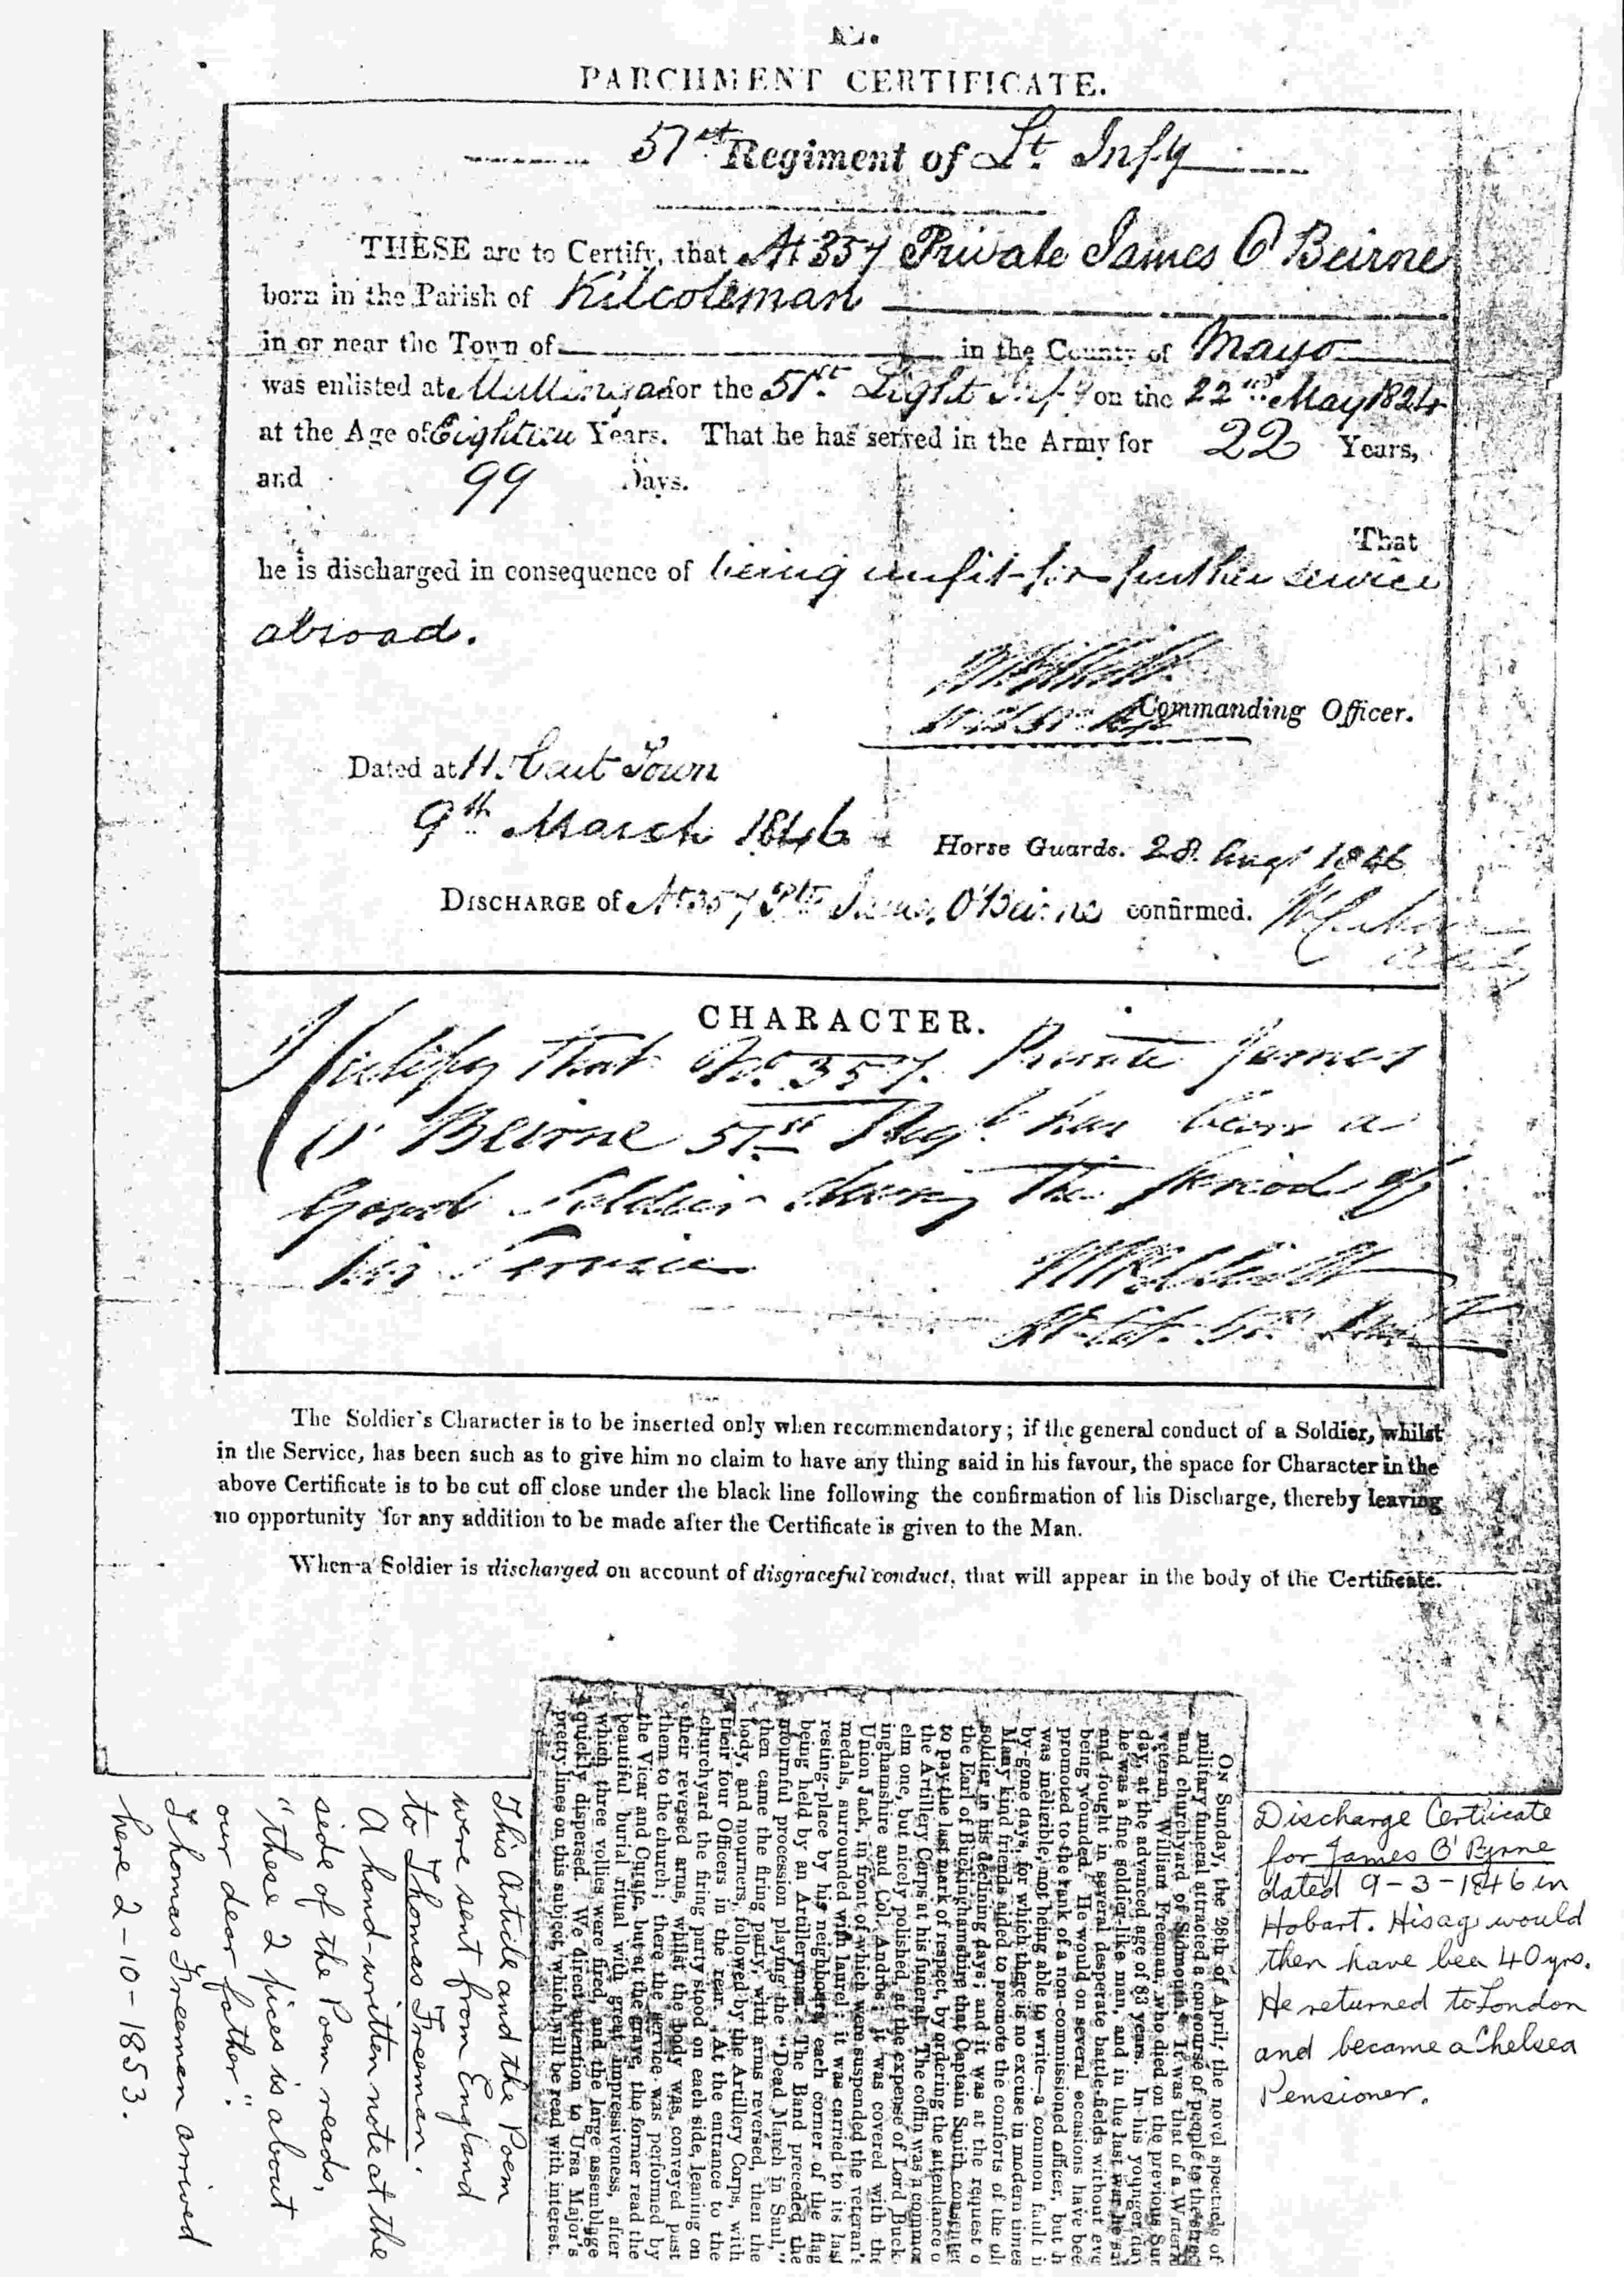 PARCHMENT CERTIFICATE.
51st Regiment of Lt. Infy
THESE are to Certify, that No 357 Private James O'Beirne
born in the Parish of Kilcoleman
in or near the Town of in the County of Mayo
was enlisted at Mullingar for the 51st Light Infy on the 22nd May 1824
at the Age of Eighteen Years. That he has served in the Army for 22 Years,
and 99 Days.
That
he is discharged in consequence of being unfit for further service
abroad.
Commanding Officer.
Dated at Town
9th March 1846
Horse Guards. 28 Augt 1846
DISCHARGE of No 357 Pte James O'Beirne confirmed.
CHARACTER.
I Certify that No. 357. Private James
O'Beirne 51st Regt. has been a
Good Soldier during the period of
his Service
The Soldier's Character is to be inserted only when recommendatory; if the general conduct of a Soldier, whilst
in the Service, has been such as to give him no claim to have any thing said in his favour, the space for Character in the
above Certificate is to be cut off close under the black line following the confirmation of his Discharge, thereby leaving
no opportunity for any addition to be made after the Certificate is given to the Man.
When a Soldier is discharged on account of disgraceful conduct, that will appear in the body of the Certificate.
ON Sunday, the 28th of April, the novel spectacle of
military funeral attracted a concourse of people to the
and churchyard of Sidmouth. It was that of a
veteran, William Freeman, who died on the previous
day, at the advanced age of 83 years. In his younger
he was a fine soldier-like man, and in the last war he
and fought in several desperate battle-fields without
being wounded. He would on several occasions have
promoted to the rank of a non-commissioned officer, but
was ineligible, not being able to write—a common fault
by-gone days, for which there is no excuse in modern times
Many kind friends aided to promote the comforts of the
soldier in his declining days; and it was at the request
the Earl of Buckinghamshire that Captain Smith
to pay the last mark of respect, by ordering the attendance
the Artillery Corps at his funeral. The coffin was a
elm one, but nicely polished, at the expense of Lord Buck
inghamshire and Col. Andros; it was covered with the
Union Jack, in front of which were suspended the veteran's
medals, surrounded with laurel; it was carried to its last
resting-place by his neighbours, each corner of the flag
being held by an Artilleryman. The Band preceded the
mournful procession playing the "Dead March in Saul,"
then came the firing party, with arms reversed, then the
body, and mourners, followed by the Artillery Corps, with
their four Officers in the rear. At the entrance to the
churchyard the firing party stood on each side, leaning on
their reversed arms, whilst the body was conveyed past
them to the church; there the service was performed by
the Vicar and Curate, but at the grave, the former read the
beautiful burial ritual with great impressiveness, after
which three vollies were fired, and the large assemblage
quickly dispersed. We direct attention to Ursa Major's
pretty lines on this subject, which will be read with interest.
This Article and the Poem
were sent from England
to Thomas Freeman.
A hand-written note at the
side of the Poem reads,
"these 2 pices is about
our dear father".
Thomas Freeman arrived
here 2-10-1853.
Discharge Certicate
for James O'Byrne
dated 9-3-1846 in
Hobart. His age would
then have bee 40 yrs.
He returned to London
and became a Chelsea
Pensioner.